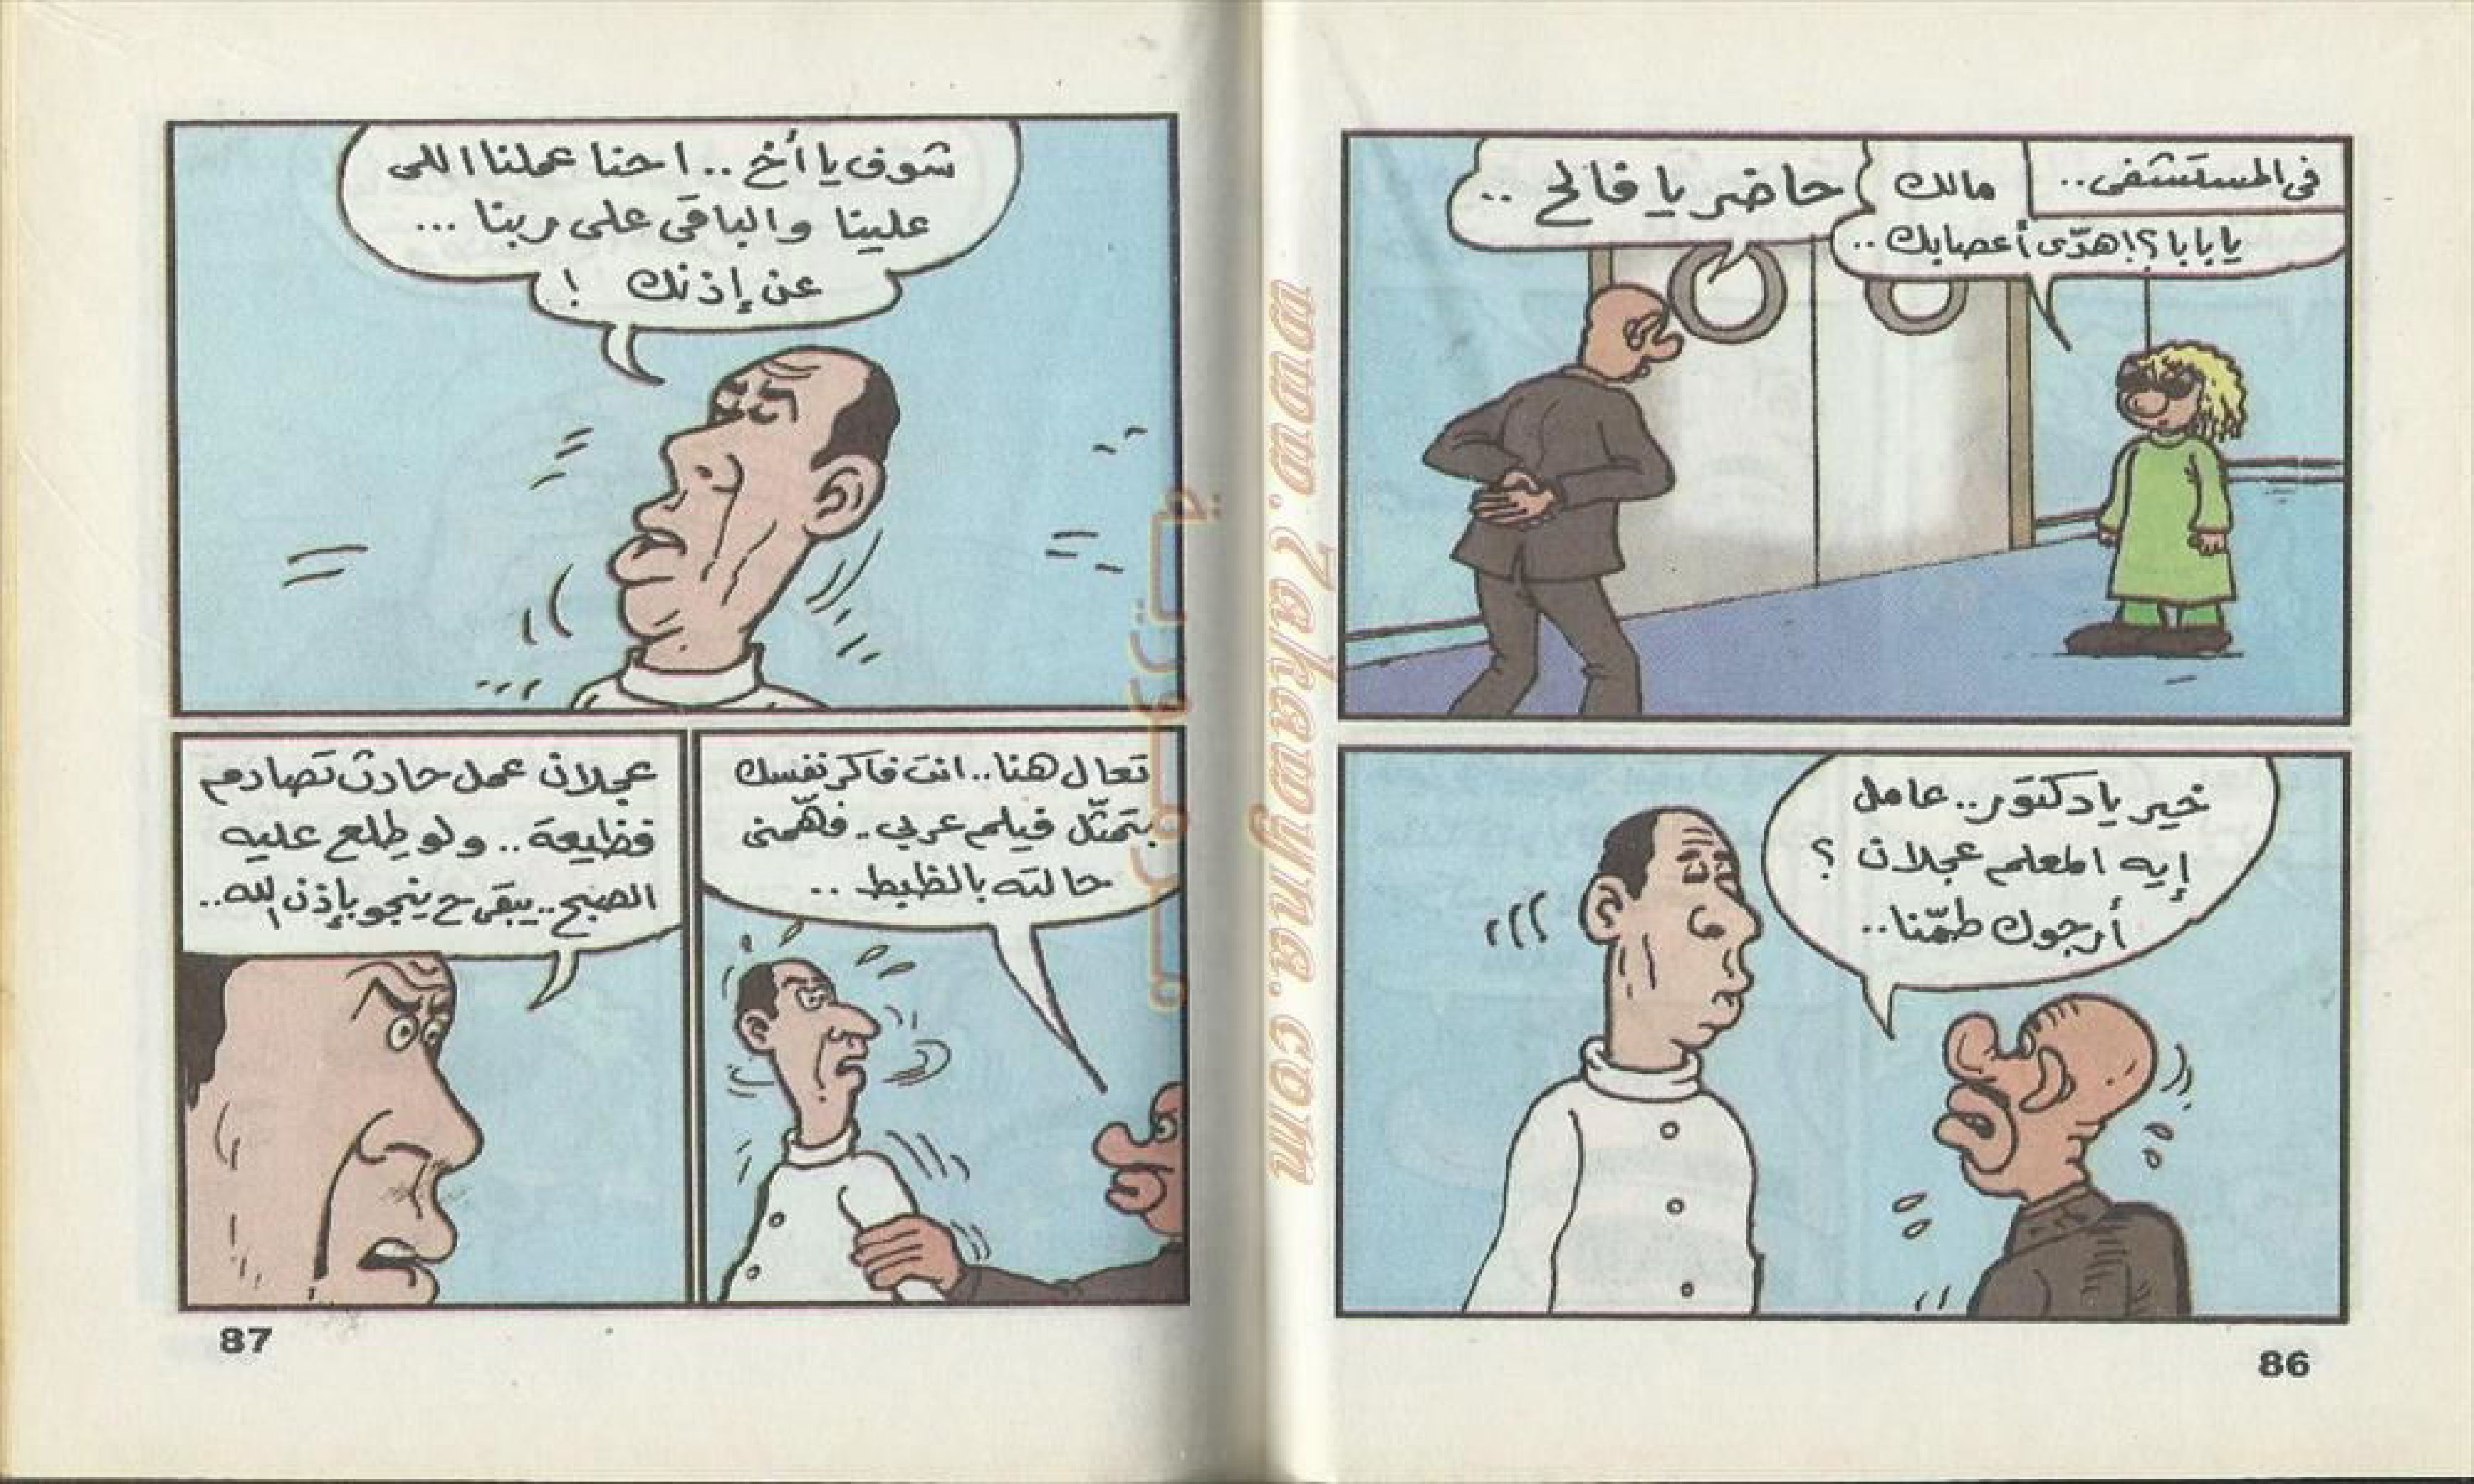 فى المستشفى..
مالك
يا بابا؟! هدّى أعصابك..
حاضر يا فالح..
خير يا دكتور.. عامل
إيه المعلم عجلان؟
أرجوك طمّنا..
86
شوف يا أخ.. احنا عملنا اللى
علينا والباقى على ربنا...
عن إذنك!
تعال هنا.. انت فاكر نفسك
بتمثّل فيلم عربى.. فهّمنى
حالته بالظبط..
عجلان عمل حادث تصادم
فظيعة.. ولو طلع عليه
الصبح.. يبقى ح ينجو بإذن الله..
87
www.7akawyna.com